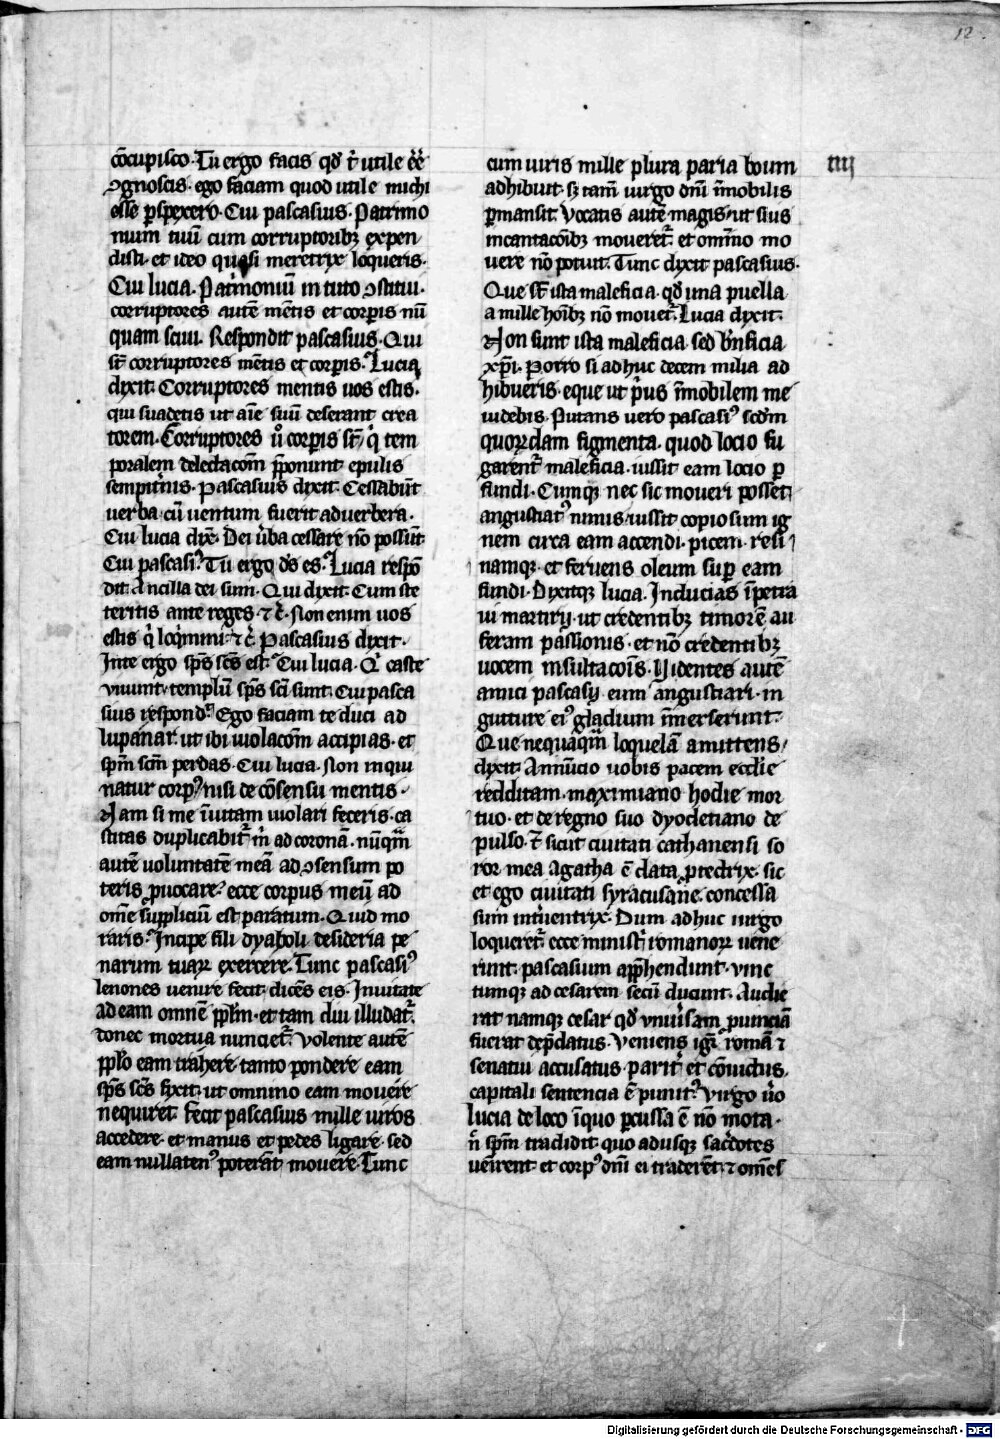 12.
cōcupisco. Tu ergo facis qđ t͛ utile ēē
ꝯgnoscis. ego faciam quod utile michi
esse ꝑspexero. Cui pascasius. Patrimo
nium tuū cum corruptoribꝫ expen
disti. et ideo quasi meretrix loqueris.
Cui lucia. Patͥmoniū in tuto ꝯstitui.
corruptores autē mētis et corꝑis nū
quam sciui. Respondit pascasius. Qui
st̄ corruptores mētis et corꝑis. Lucia
dixit. Corruptores mentis uos estis.
qui suadetis ut aīe suū deserant crea
torem. Corruptores ū͛o corꝑis st̄. qͥ tem
poralem delectacōm p̄ponunt epulis
sempitͥnis. Pascasius dixit. Cessabūt
uerba cū uentum fuerit ad uerbera.
Cui lucia dix̄. Dei u͛ba cessare nō possūt.
Cui pascasiꝰ. Tu ergo ds̄ es. Lucia respō
dit. Ancilla dei sum. Qui dixit. Cum ste
teritis ante reges ⁊ c̄. Non enim uos
estis qͥ loqͥmini. ⁊ c̄. Pascasius dixit.
In te ergo sp̄s scs̄ est. Cui lucia. Qͥ caste
viuunt. templū sp̄s sc̄i sunt. Cui pasca
sius respondͭ. Ego faciam te duci ad
lupanar. ut ibi uiolacōm accipias. et
sp̄m sc̄m perdas. Cui lucia. Non inqui
natur corpꝰ. nisi de cōsensu mentis.
Nam si me īuitam uiolari feceris. ca
stitas duplicabit᷑ m̄ ad coronā. nūqͣm
autē voluntatē meā ad ꝯsensum po
teris ꝓuocare. ecce corpus meū ad
ome suppliciū est paratum. Quid mo
raris. Incipe fili dyaboli desideria pe
narum tuaꝝ exercere. Tunc pascasiꝰ
lenones uenire fecit. dicēs eis. Inuitate
ad eam omnē pp̄l'm. et tam diu illudat᷑.
donec mortua nunciet᷑. Volente autē
pp̄l'o eam trahere. tanto pondere eam
sp̄s scs̄ fixit. ut omnino eam mouere
nequiret. Fecit pascasius mille uiros
accedere. et manus et pedes ligare. sed
eam nullatenꝰ poterāt mouere. Tunc
cum uiris mille plura paria boum
adhibuit. sꝫ tam̄ uirgo dn̄i īmobilis
ꝑmansit. Vocatis autē magis. ut suis
incantacōībꝫ moueret᷑. et omīno mo
uere nō potuit. Tunc dyxit pascasius.
Que st̄ ista maleficia. qđ una puella
a mille hoībꝫ nō mouet᷑. Lucia dixit.
Non sunt ista maleficia. sed bn̄ficia
xp̄i. Porro si ad huc decem milia ad
hibueris. eque ut pͥus īmobilem me
uidebis. Putans uero pascasiꝰ scđm
quoꝝdam figmenta. quod locio fu
garent᷑ maleficia. iussit eam locio ꝑ
fundi. Cumqꝫ nec sic moueri posset.
angustiatꝰ nimis. iussit copiosum ig
nem circa eam accendi. picem. resi
namqꝫ. et feruens oleum suꝑ eam
fundi. Dyxitqꝫ lucia. Inducias īpetra
ui martirij. ut credentibꝫ timorē au
feram passionis. et nō credentibꝫ
uocem insultacoīs. Uidentes autē
amici pascasij eum angustiari. in
gutture eiꝰ gladium īmerserunt.
Que nequaqͣm loquelā amittens.
dixit. Annūcio uobis pacem ecclīe
redditam. maximiano hodie mor
tuo. et de regno suo dyocletiano de
pulso. ⁊ sicut ciuitati cathanensi so
ror mea Agatha ē data ꝓtectrix. sic
et ego ciuitati syracusane concessa
sum intͥuentrix. Dum ad huc uirgo
loqueret᷑. ecce minist̄ͥ romanoꝝ uene
runt. pascasium app̄hendunt. vinc
tumqꝫ ad cesarem secū ducunt. Audie
rat namqꝫ cesar qđ vniu͛sam ꝓuinciā
fuerat dep̄datus. Veniens igͥ romā ⁊
senatui accusatus parit͛ et cōuictus.
capitali sentencia ē punitꝰ. Virgo ū͛o
lucia de loco īquo ꝑcussa ē nō mota.
n̄ sp̄m tradidit. quo adusqꝫ sac͛dotes
uenirent et corpꝰ dn̄i ei traderēt. ⁊ om̄es
iiij
Digitalisierung gefördert durch die Deutsche Forschungsgemeinschaft - DFG